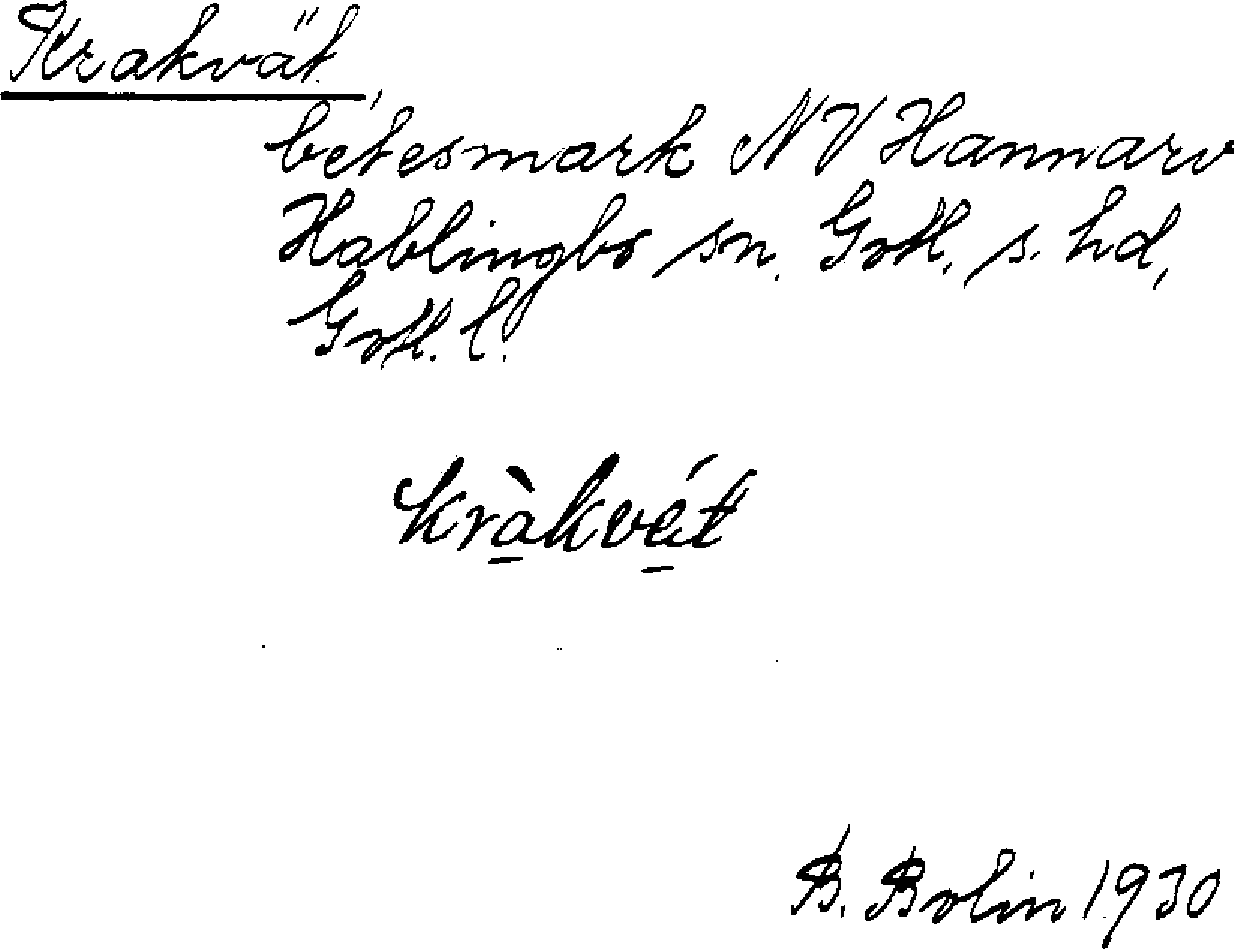 Krakvät,
betesmark NV Hannarv
Hablingbo sn. Gotl. s. hd,
Gotl. l.
kràkvét
B. Bolin 1930